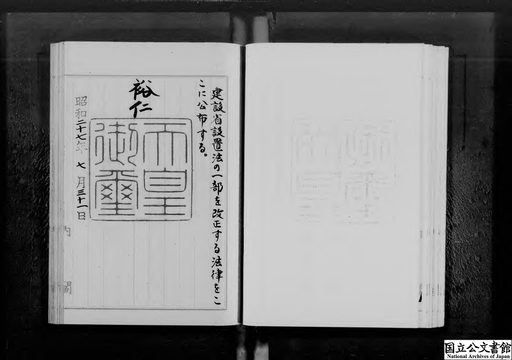 建設省設置法の一部を改正する法律をこ
こに公布する。
裕仁
天皇
御璽
昭和二十七年七月三十一日
内閣
国立公文書館
National Archives of Japan